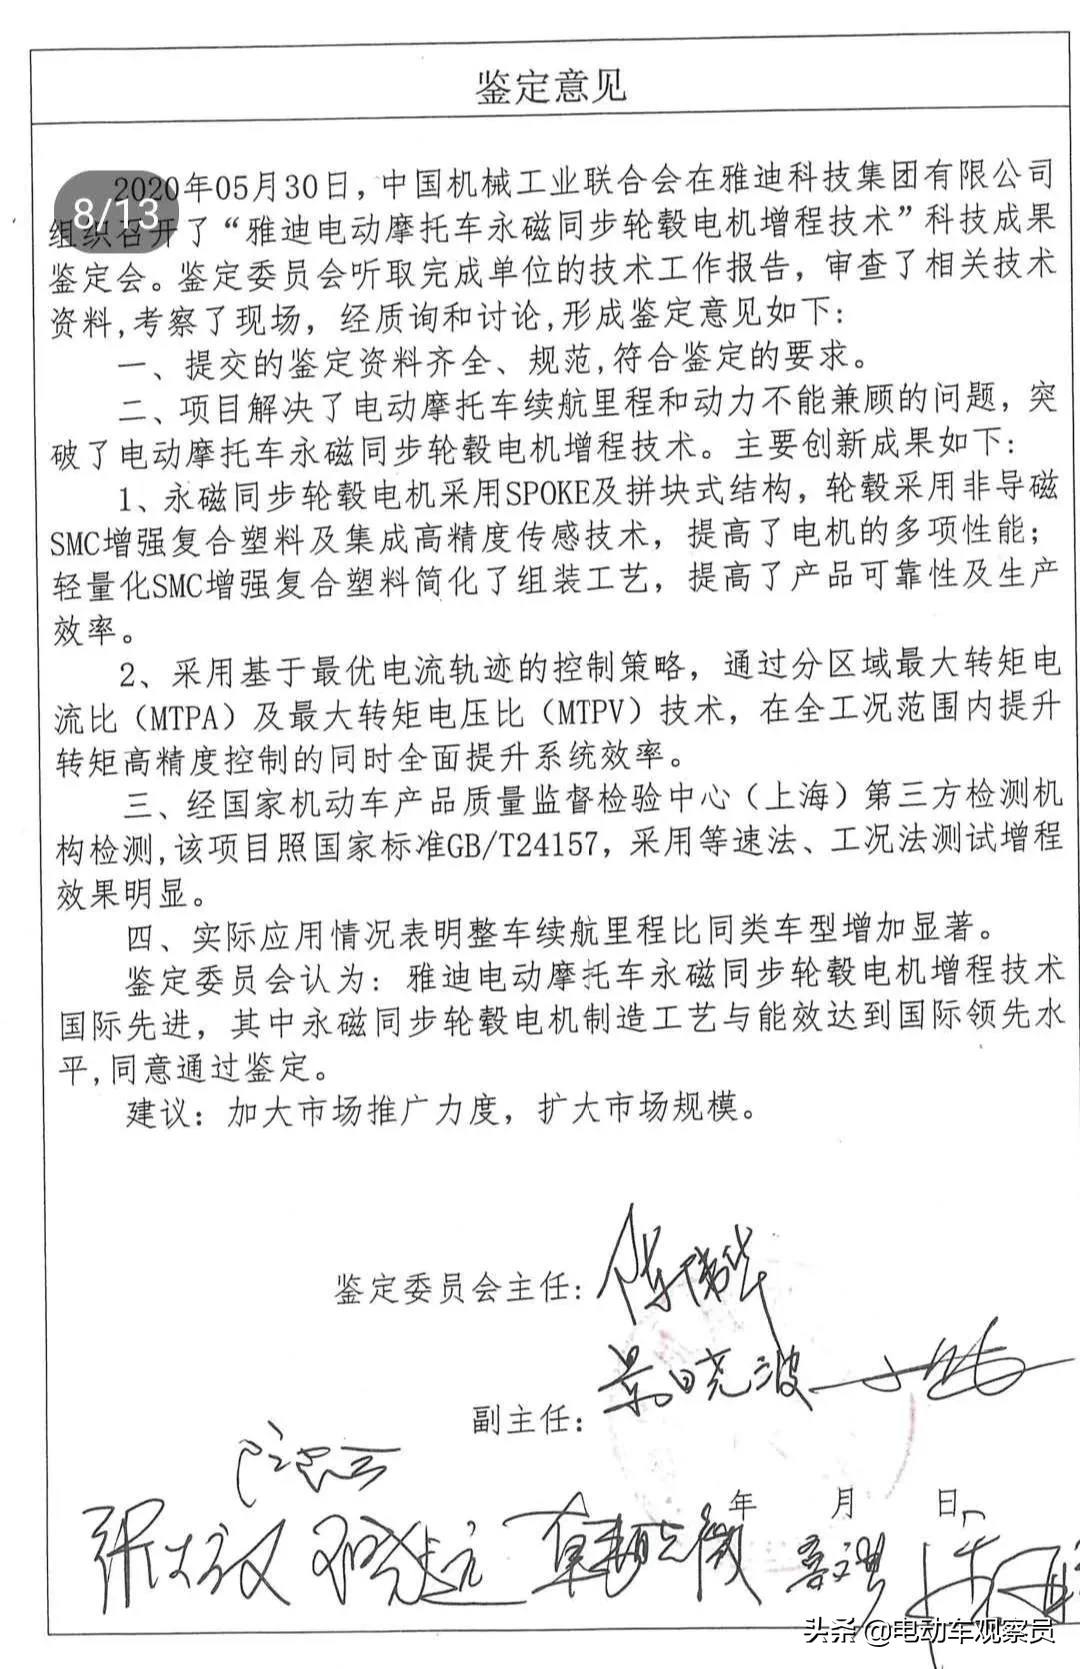 鉴定意见
2020年05月30日，中国机械工业联合会在雅迪科技集团有限公司
8/13
组织召开了“雅迪电动摩托车永磁同步轮毂电机增程技术”科技成果
鉴定会。鉴定委员会听取完成单位的技术工作报告，审查了相关技术
资料,考察了现场，经质询和讨论,形成鉴定意见如下:
一、提交的鉴定资料齐全、规范,符合鉴定的要求。
二、项目解决了电动摩托车续航里程和动力不能兼顾的问题，突
破了电动摩托车永磁同步轮毂电机增程技术。主要创新成果如下:
1、永磁同步轮毂电机采用SPOKE及拼块式结构，轮毂采用非导磁
SMC增强复合塑料及集成高精度传感技术，提高了电机的多项性能；
轻量化SMC增强复合塑料简化了组装工艺，提高了产品可靠性及生产
效率。
2、采用基于最优电流轨迹的控制策略，通过分区域最大转矩电
流比（MTPA）及最大转矩电压比（MTPV）技术，在全工况范围内提升
转矩高精度控制的同时全面提升系统效率。
三、经国家机动车产品质量监督检验中心（上海）第三方检测机
构检测,该项目照国家标准GB/T24157，采用等速法、工况法测试增程
效果明显。
四、实际应用情况表明整车续航里程比同类车型增加显著。
鉴定委员会认为: 雅迪电动摩托车永磁同步轮毂电机增程技术
国际先进，其中永磁同步轮毂电机制造工艺与能效达到国际领先水
平,同意通过鉴定。
建议: 加大市场推广力度，扩大市场规模。
鉴定委员会主任:
景晓波
副主任:
年 月 日
头条 @电动车观察员